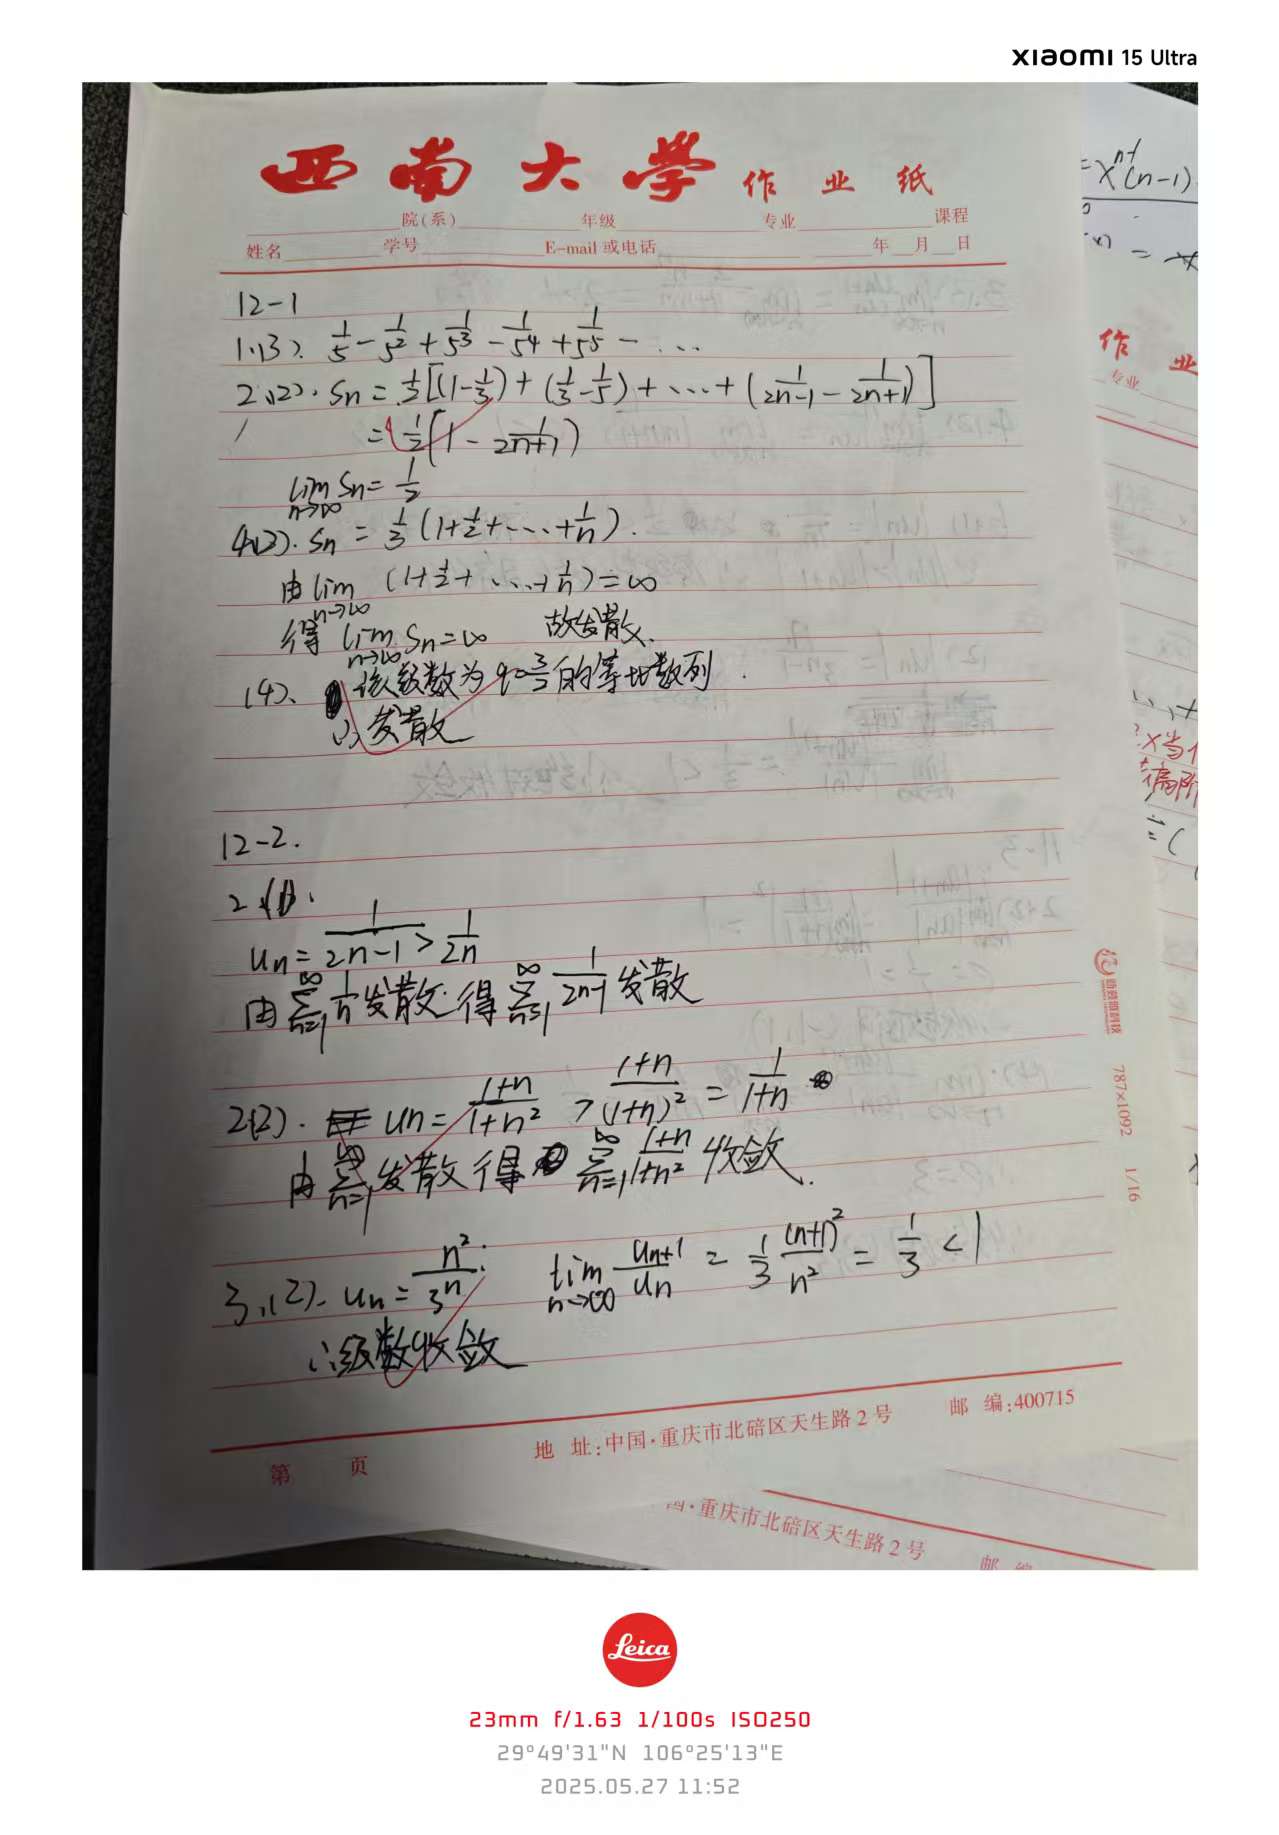 xiaomi 15 Ultra
西南大学 作业纸
院(系) 年级 专业 课程
姓名 学号 E-mail 或电话 年 月 日
12-1
1.(3). 1/5 - 1/5² + 1/5³ - 1/5⁴ + 1/5⁵ - ...
2.(2). Sn = 1/2[(1-1/3)+(1/3-1/5)+...+(1/2n-1 - 1/2n+1)]
= 1/2(1 - 1/2n+1)
lim n→∞ Sn = 1/2
4(2). Sn = 1/3(1+1/2+...+1/n).
由 lim n→∞ (1+1/2+...+1/n)=∞
得 lim n→∞ Sn=∞ 故发散.
(4). 该级数为 q=3/2 的等比数列
∴发散
12-2.
2.(1).
un = 1/2n-1 > 1/2n
由 ∑ n=1 ∞ 1/n 发散. 得 ∑ n=1 ∞ 1/2n-1 发散
2(2). un = 1+n/1+n² > 1+n/(1+n)² = 1/1+n
由 ∑ n=1 ∞ 发散得 ∑ n=1 ∞ 1+n/1+n² 收敛.
3.(2). un = n²/3ⁿ: lim n→∞ un+1/un = 1/3 (n+1)²/n² = 1/3 < 1
∴级数收敛
地 址:中国·重庆市北碚区天生路2号 邮 编:400715
第 页
787×1092 1/16
= xⁿ⁻¹(n-1)
作 业
专业
×当
偏阶
·重庆市北碚区天生路2号
邮
Leica
23mm f/1.63 1/100s ISO250
29°49'31"N 106°25'13"E
2025.05.27 11:52